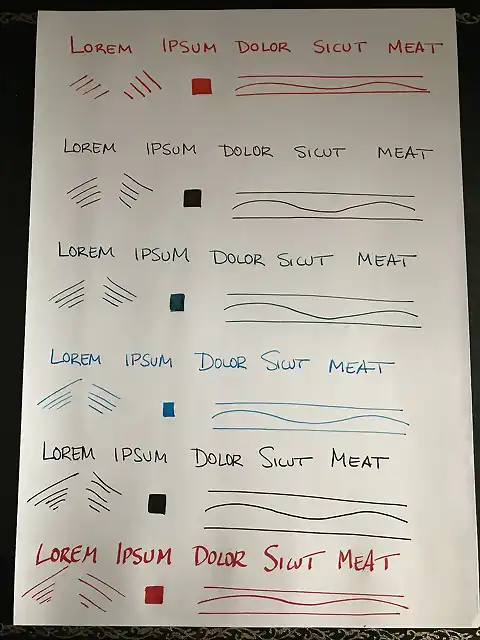 LOREM IPSUM DOLOR SICUT MEAT
LOREM IPSUM DOLOR SICUT MEAT
LOREM IPSUM DOLOR SICUT MEAT
LOREM IPSUM DOLOR SICUT MEAT
LOREM IPSUM DOLOR SICUT MEAT
LOREM IPSUM DOLOR SICUT MEAT